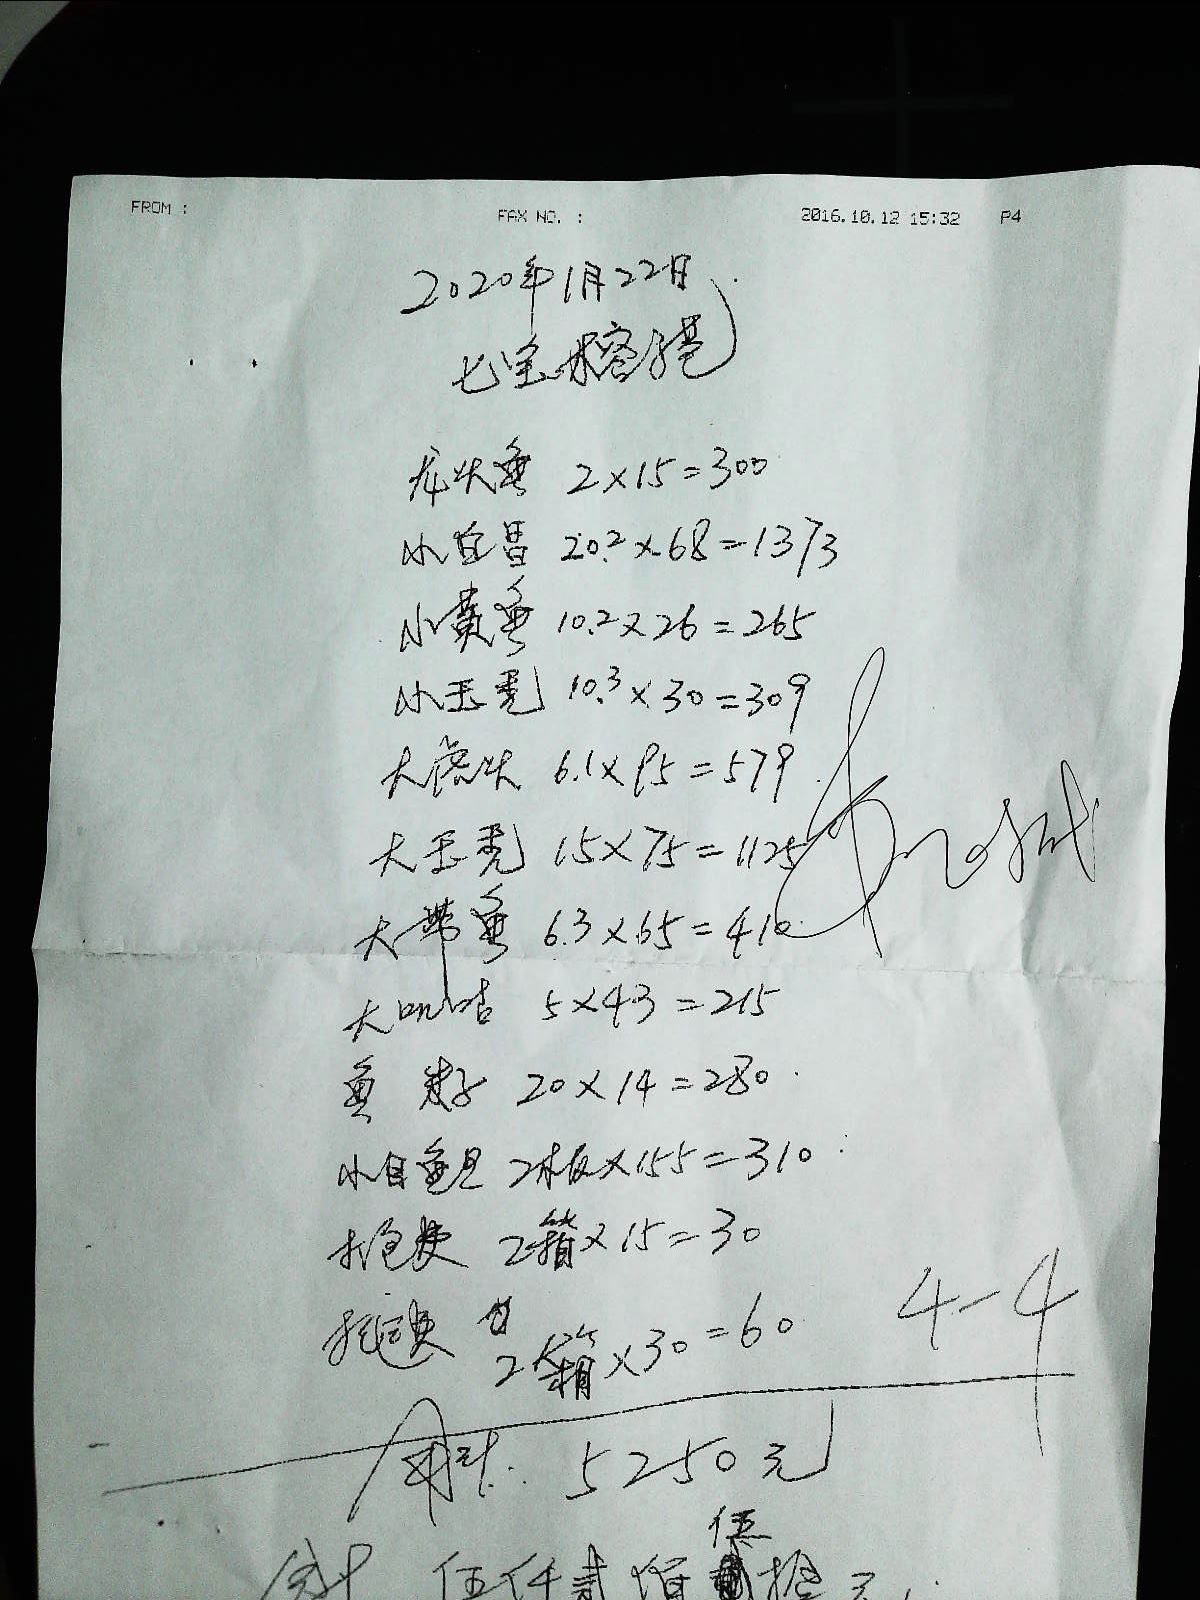 FROM : FAX NO. : 2016.10.12 15:32 P4
2020年1月22日
七宝
龙头鱼 2×15=300
小白昌 20.2×68=1373
小黄鱼 10.2×26=265
小玉秃 10.3×30=309
大 头 6.1×95=579
大玉秃 15×75=1125
大带鱼 6.3×65=410
大 5×43=215
鱼 子 20×14=280
小目鱼旦 2板×155=310
2箱×15=30
2箱×30=60
4-4
合计. 5250元
伍
合计 伍仟贰佰 拾元